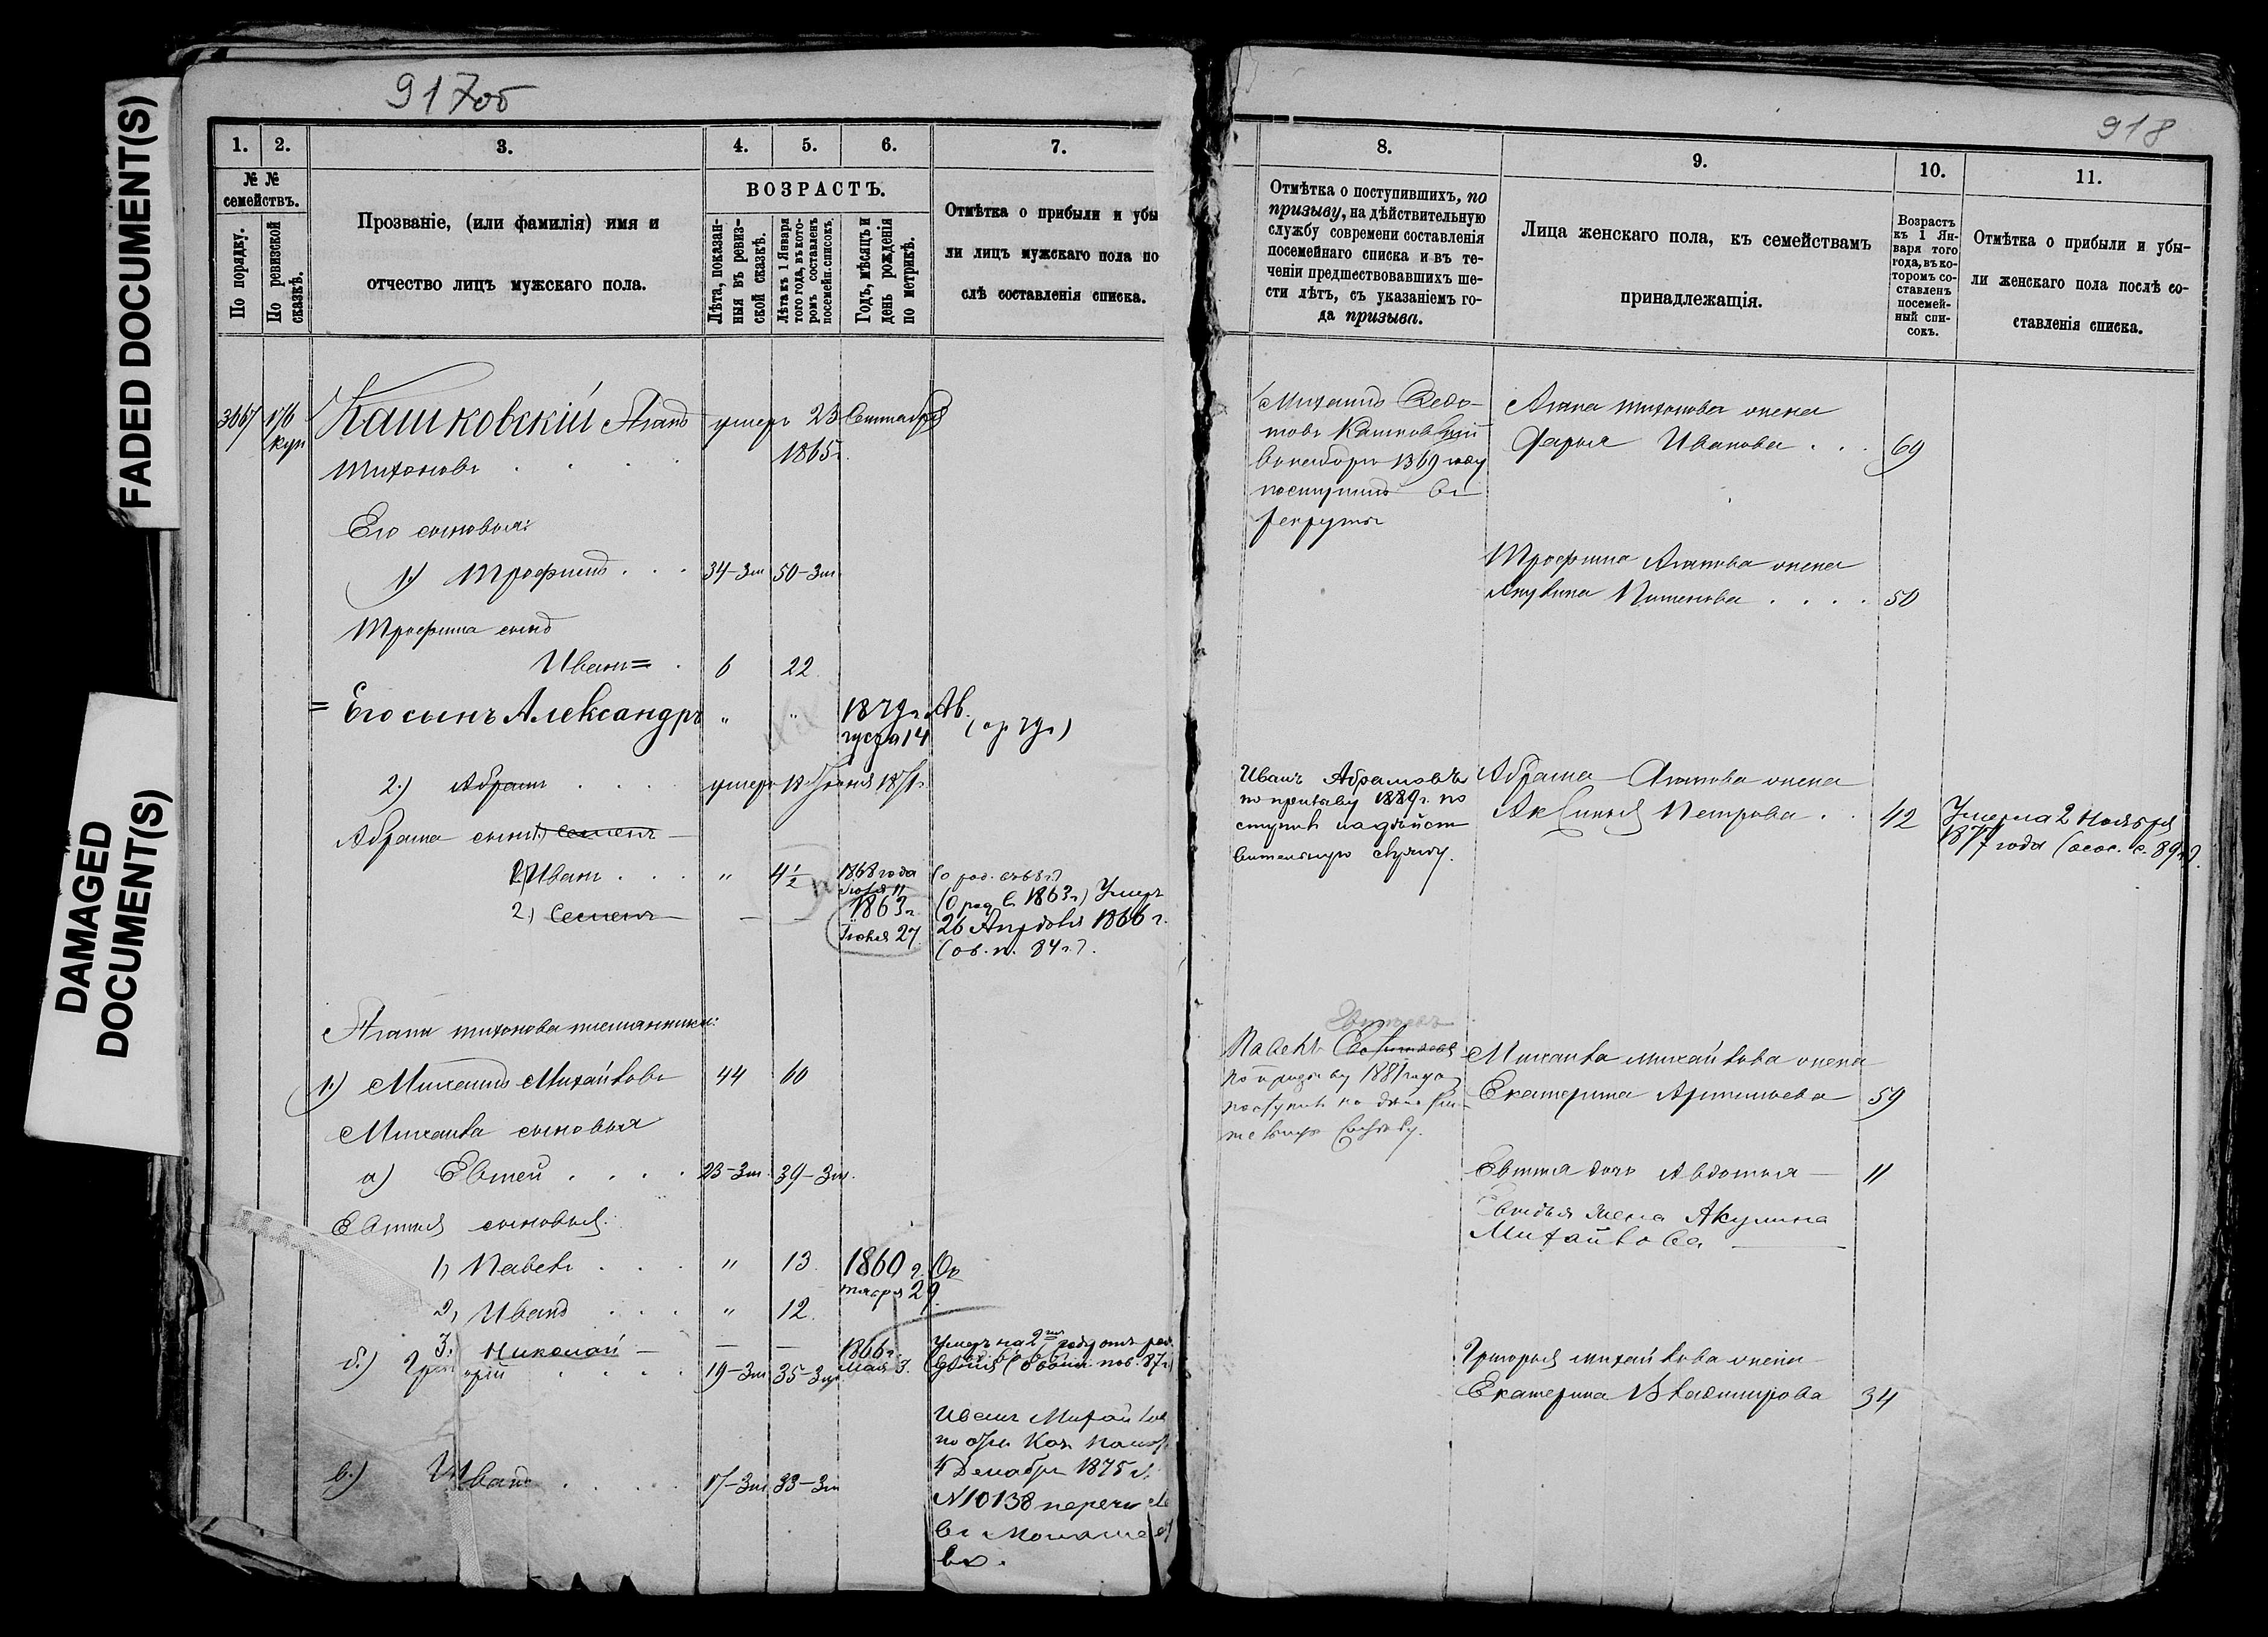 FADED DOCUMENT(S)
DAMAGED
DOCUMENT(S)
917об
1. 2. 3. 4. 5. 6. 7.
№ №
семействъ.
По порядку.
По ревизской
сказкѣ.
Прозваніе, (или фамилія) имя и
отчество лицъ мужскаго пола.
ВОЗРАСТЪ.
Лѣта, показан-
ныя въ ревиз-
ской сказкѣ.
Лѣта къ 1 Января
того года, въ кото-
ромъ составленъ
посемейн. списокъ.
Годъ, мѣсяцъ и
день рожденія
по метрикѣ.
Отмѣтка о прибыли и убы
ли лицъ мужскаго пола по
слѣ составленія списка.
Кашковскій Агапъ умеръ 23 Сентября
Тихоновъ . . . . 1865 г.
Его сыновья:
1.) Трофимъ . . . 34-3м 50-3м
Трофима сынъ
Иванъ = . 6 22
= Его сынъ Александръ " " 1879 г. Ав
густа 14
2.) Абрамъ . . . . умеръ 18 Іюня 1871 г.
Абрама сынъ 1) Семенъ
2) Иванъ . . . " 4 1/2 1868 года
2.) Семенъ — — 1863 г. (О род. въ 1863 г.) Умеръ
Іюня 27 26 Апрѣля 1866 г.
(об. п. 84 г.).
Агапа Тихонова племянники:
1.) Михаилъ Михайловъ 44 60
Михаила сыновья
а) Евтей . . . . 23-3м. 39-3м.
Евтея сыновья:
1, Павелъ . . . " 13. 1860 г. Ок
тября 29.
2, Иванъ . . . " 12.
3. Николай — — — 1866 г. Умеръ на 2мъ году отъ рож
Мая 3.
б.) Григорій . . . . 19-3м 35-3м
в.) Иванъ . . . . 17-3м 33-3м
Иванъ Михайлов
по
4 Декабря 1875 г.
N 10138 перечисле
въ
918
8. 9. 10. 11.
Отмѣтка о поступившихъ, по
призыву, на дѣйствительную
службу современи составленія
посемейнаго списка и въ те-
ченіи предшествовавшихъ ше-
сти лѣтъ, съ указаніемъ го-
да призыва.
Лица женскаго пола, къ семействамъ
принадлежащія.
Возрастъ
къ 1 Ян-
варя того
года, въ ко-
торомъ со-
ставленъ
посемей-
ный спи-
сокъ.
Отмѣтка о прибыли и убы-
ли женскаго пола послѣ со-
ставленія списка.
Михаилъ Федо-
товъ Кашковскій
1869 году
поступилъ въ
рекруты
Агапа Тихонова жена
Дарья Иванова . . . 69
Трофима Агапова жена
Акулина Пименова . . . . 50
Иванъ Абрамовъ
по призыву 1889 г. по
ступилъ на дѣйст
вительную службу.
Абрама Агапова жена
Аксинья Петрова . . 42
Умерла 2 Ноября
1877 года
Павелъ
по призыву 1881 года
поступилъ на дѣйстви-
тельную службу.
Михаила Михайлова жена
Екатерина Артемьева 59
Евтея дочь Авдотья — 11
жена Акулина
Михайлова
Григорья Михайлова жена
Екатерина Владимирова 34